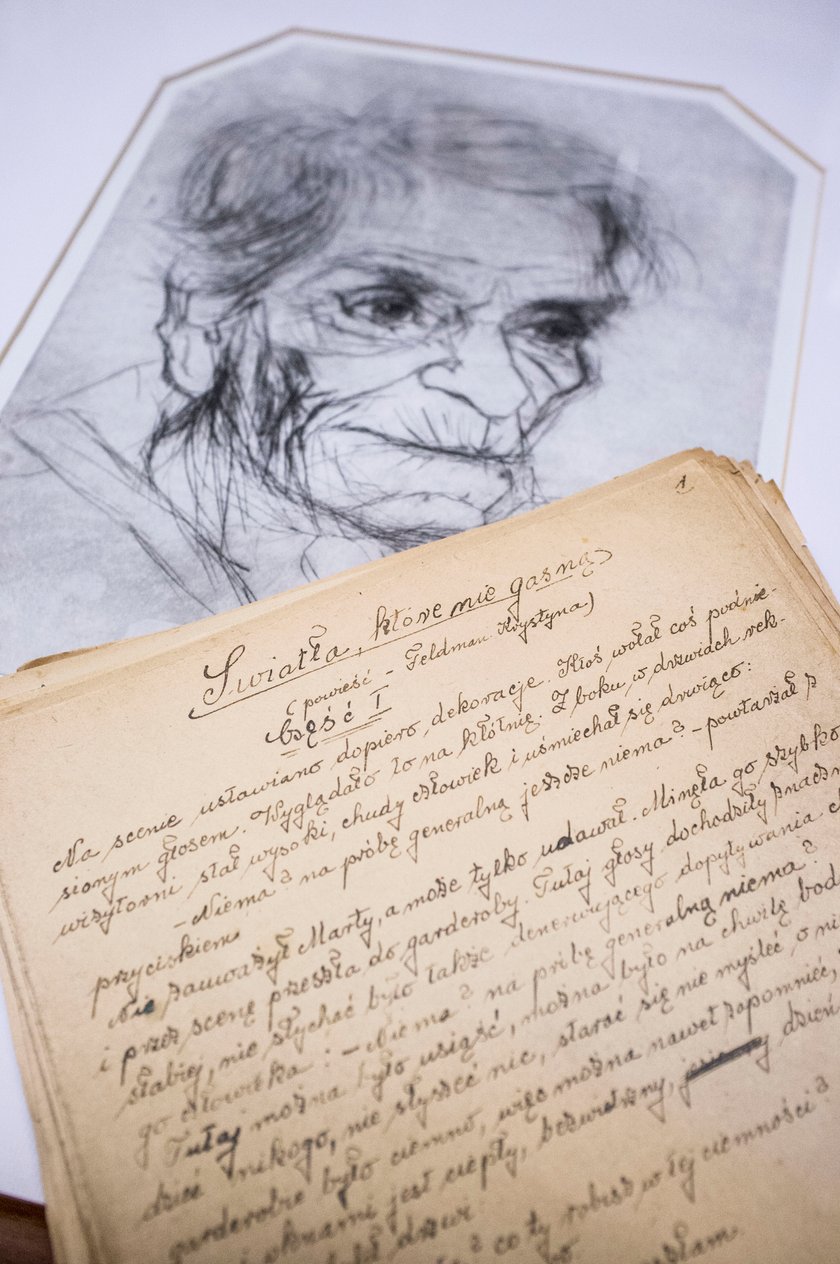 1
Światła, które nie gasną
(powieść - Feldman Krystyna)
Część I
Na scenie ustawiano dopiero dekoracje. Ktoś wołał coś podnie-
sionym głosem. Wyglądało to na kłótnię. Z boku w drzwiach rek-
wizytorni stał wysoki, chudy człowiek i uśmiechał się drwiąco:
- Niema? na próbę generalną jeszcze niema? - powtarzał z
przyciskiem.
Nie zauważył Marty, a może tylko udawał. Minęła go szybko
i przez scenę przeszła do garderoby. Tutaj głosy dochodziły znacz
słabiej, nie słychać było także denerwującego dopytywania
go człowieka: - Niema? na próbę generalną niema?
Tutaj można było usiąść, można było na chwilę
dzieć nikogo, nie słyszeć nic, starać się nie myśleć o
garderobie było ciemno, więc można nawet zapomnieć,
oknami jest ciepły, bezwietrzny, dzień
drzwi
co ty robisz w tej ciemności?